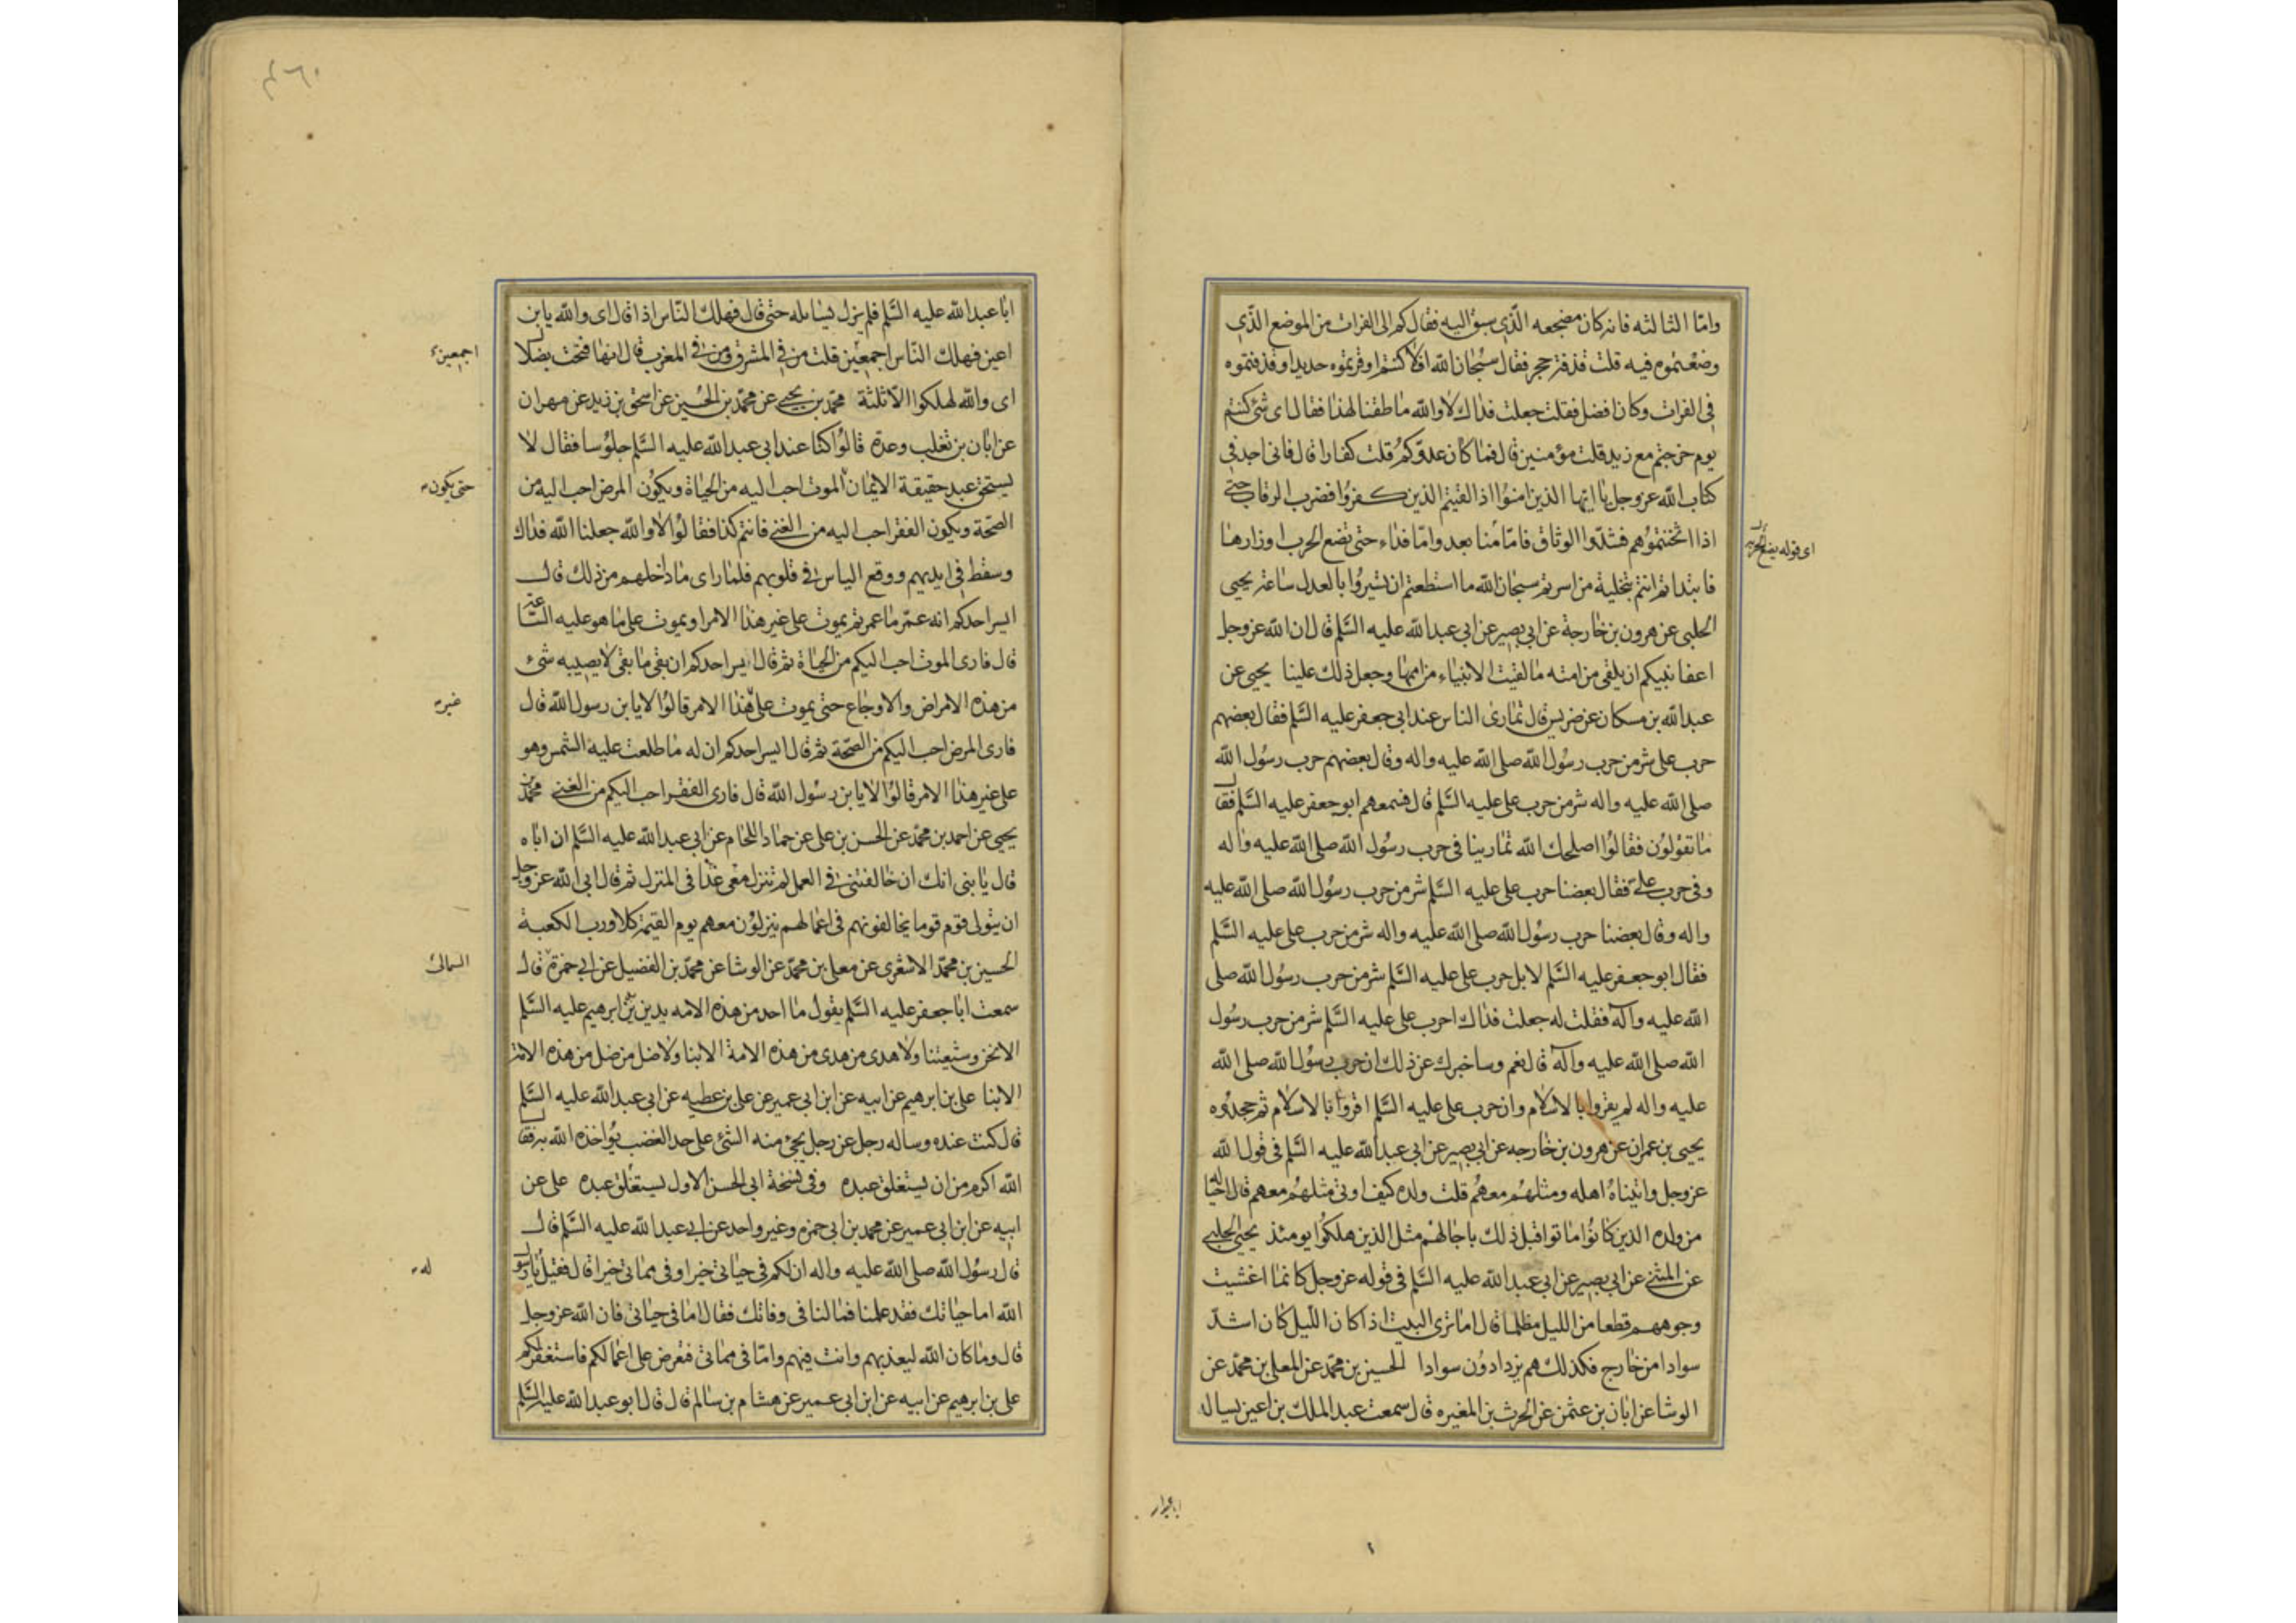 وامّا الثالثه فانه كان مضجعه الذّى سبق اليه فقال كم الى الفرات من الموضع الذّى
وضعتموه فيه قلت قذفة حجر فقال سبحان الله افلا كنتم اوقرتموه حديدا وقذفتموه
فى الفرات وكان افضل فقلت جعلت فداك لا والله ما طقنا لهذا فقال اى شئ كنتم
يوم خرجتم مع زيد قلت مؤمنين قال فما كان عدوّكم قلت كفارا قال فانى اجد فى
كتاب الله عز وجل يا ايها الذين امنوا اذا لقيتم الذين كفروا فضرب الرقاب حتى
اذا اثخنتموهم فشدّوا الوثاق فامّا منّا بعد وامّا فداء حتى تضع الحرب اوزارها
فابتداتم انتم بتخلية من اسرتم سبحان الله ما استطعتم ان تسيروا بالعدل ساعة يحيى
الحلبى عن هرون بن خارجة عن ابى بصير عن ابى عبد الله عليه السّلم قال ان الله عز وجل
اعفا نبيكم ان يلقى من امته ما لقيت الانبياء من اممها وجعل ذلك علينا يحيى عن
عبد الله بن مسكان عن ضريس قال تمارى الناس عند ابى جعفر عليه السّلم فقال بعضهم
حرب على شر من حرب رسول الله صلى الله عليه واله وقال بعضهم حرب رسول الله
صلى الله عليه واله شر من حرب على عليه السّلم قال فسمعهم ابو جعفر عليه السّلم فقال
ما تقولون فقالوا اصلحك الله تمارينا فى حرب رسول الله صلى الله عليه واله
وفى حرب علىّ فقال بعضنا حرب على عليه السّلم شر من حرب رسول الله صلى الله عليه
واله وقال بعضنا حرب رسول الله صلى الله عليه واله شر من حرب على عليه السّلم
فقال ابو جعفر عليه السّلم لا بل حرب على عليه السّلم شر من حرب رسول الله صلى
الله عليه وآله فقلت له جعلت فداك احرب على عليه السّلم شر من حرب رسول
الله صلى الله عليه وآله قال نعم وساخبرك عن ذلك ان حرب رسول الله صلى الله
عليه واله لم يقروا بالاسلام وان حرب على عليه السّلم اقروا بالاسلام ثم جحدوه
يحيى بن عمران عن هرون بن خارجه عن ابى بصير عن ابى عبد الله عليه السّلم فى قول الله
عز وجل واتيناه اهله ومثلهم معهم قلت ولده كيف اوتى مثلهم معهم قال احيا له
من ولده الذين كانوا ماتوا قبل ذلك باجالهم مثل الذين هلكوا يومئذ يحيى الحلبى
عن المثنى عن ابى بصير عن ابى عبد الله عليه السّلم فى قوله عز وجل كانما اغشيت
وجوههم قطعا من الليل مظلما قال اما ترى البيت اذا كان اللّيل كان اشدّ
سوادا من خارج فكذلك هم يزدادون سوادا الحسين بن محمّد عن المعلى بن محمّد عن
الوشا عن ابان بن عثمن عن الحرث بن المغيره قال سمعت عبد الملك بن اعين يسال
ابا عبد الله عليه السّلم فلم يزل يسايله حتى قال فهلك النّاس اذا قال اى والله يابن
اعين فهلك النّاس اجمعين قلت من فى المشرق ومن فى المغرب قال انها فتحت بضلال
اجمعين
اى والله لهلكوا الا ثلثة محمّد بن يحيى عن محمّد بن الحسين عن اسحق بن زيد عن مهران
عن ابان بن تغلب وعدة قالوا كنا عند ابى عبد الله عليه السّلم جلوسا فقال لا
يستحق عبد حقيقة الايمان الموت احب اليه من الحياة ويكون المرض احب اليه من
حتى يكون
الصّحة ويكون الفقر احب اليه من الغنى فانتم كذا فقالوا لا والله جعلنا الله فداك
وسقط فى ايديهم ووقع الياس فى قلوبهم فلما راى ما داخلهم من ذلك قال
ايسر احدكم انه عمّر ما عمر ثم يموت على غير هذا الامر او يموت على ما هو عليه السّاعة
قال فارى الموت احب اليكم من الحياة ثم قال ايسر احدكم ان بقى ما بقى لا يصيبه شىء
من هذه الامراض والاوجاع حتى يموت على هذا الامر قالوا لا يابن رسول الله قال
غير
فارى المرض احب اليكم من الصّحة ثم قال ايسر احدكم ان له ما طلعت عليه الشمس وهو
على غير هذا الامر قالوا لا يابن رسول الله قال فارى الفقر احب اليكم من الغنى محمّد بن
يحيى عن احمد بن محمّد عن الحسن بن على عن حماد اللحام عن ابى عبد الله عليه السّلم ان اباه
قال يا بنى انك ان خالفتنى فى العمل لم تنزل معى غدا فى المنزل ثم قال ابى الله عز وجل
ان يتولى قوم قوما يخالفونهم فى اعمالهم ينزلون معهم يوم القيمة كلا ورب الكعبة
الحسين بن محمّد الاشعرى عن معلى بن محمّد عن الوشا عن محمّد بن الفضيل عن ابى حمزة قال
الثمالى
سمعت ابا جعفر عليه السّلم يقول ما احد من هذه الامه يدين بدين ابرهيم عليه السّلم
الا نحن وشيعتنا ولا هدى من هدى من هذه الامة الا بنا ولا ضل من ضل من هذه الامة
الا بنا على بن ابرهيم عن ابيه عن ابن ابى عمير عن على بن عطيه عن ابى عبد الله عليه السّلم
قال كنت عنده وساله رجل عن رجل يجئ منه الشئ على حد الغضب يؤاخذه الله به فقال
الله اكرم من ان يستغلق عبده وفى نسخة ابى الحسن الاول يستغلق عبده على عن
ابيه عن ابن ابى عمير عن محمد بن ابى حمزه وغير واحد عن ابى عبد الله عليه السّلم قال
قال رسول الله صلى الله عليه واله ان لكم فى حياتى خيرا وفى مماتى خيرا قال فقيل يا رسول
له
الله اما حياتك فقد علمنا فما لنا فى وفاتك فقال اما فى حياتى فان الله عز وجل
قال وما كان الله ليعذبهم وانت فيهم وامّا فى مماتى فتعرض على اعمالكم فاستغفر لكم
على بن ابرهيم عن ابيه عن ابن ابى عمير عن هشام بن سالم قال قال ابو عبد الله عليه السّلم